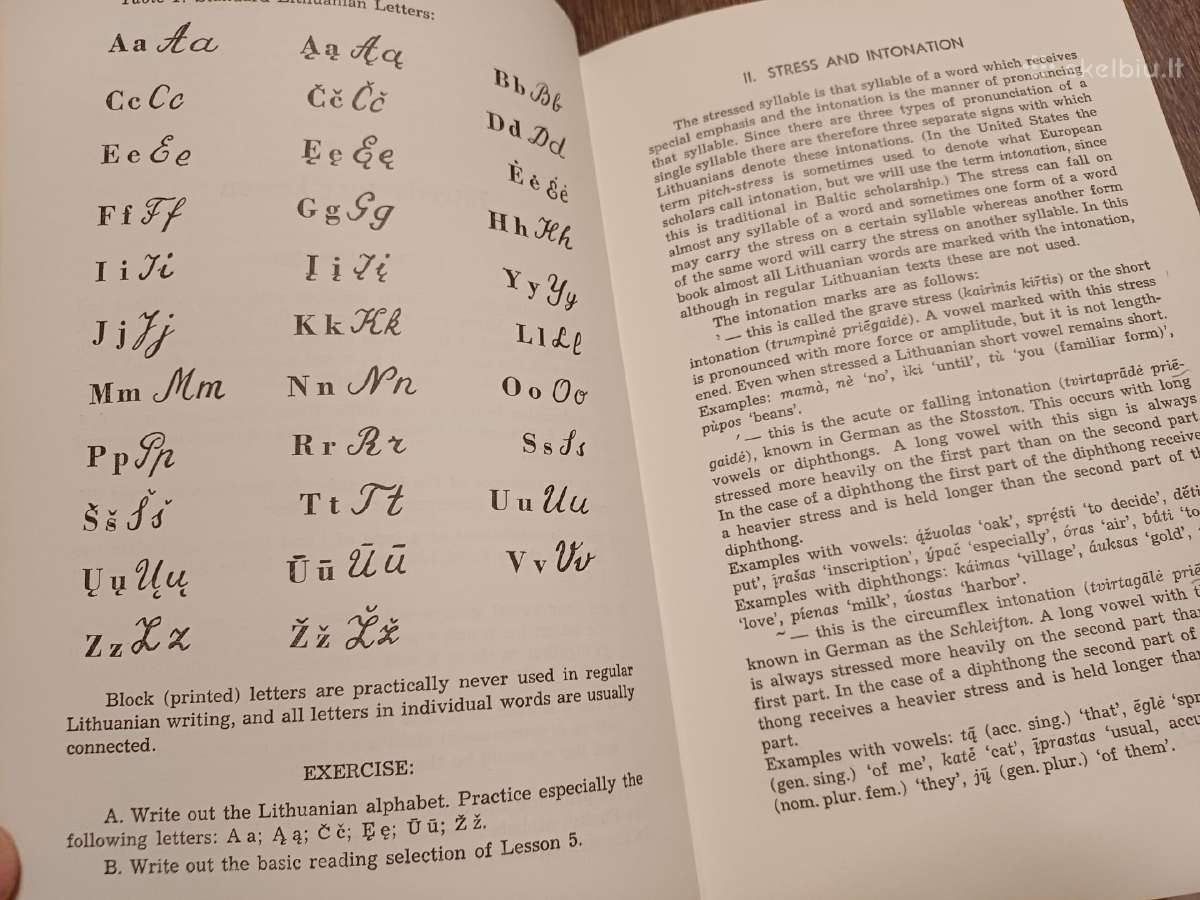 Table 1. Standard Lithuanian Letters:
A a A a Ą ą Ą ą B b B b
C c C c Č č Č č D d D d
E e E e Ę ę Ę ę Ė ė Ė ė
F f F f G g G g H h H h
I i I i Į į Į į Y y Y y
J j J j K k K k L l L l
M m M m N n N n O o O o
P p P p R r R r S s S s
Š š Š š T t T t U u U u
Ų ų Ų ų Ū ū Ū ū V v V v
Z z Z z Ž ž Ž ž
Block (printed) letters are practically never used in regular
Lithuanian writing, and all letters in individual words are usually
connected.
EXERCISE:
A. Write out the Lithuanian alphabet. Practice especially the
following letters: A a; Ą ą; Č č; Ę ę; Ū ū; Ž ž.
B. Write out the basic reading selection of Lesson 5.
skelbiu.lt
II. STRESS AND INTONATION
The stressed syllable is that syllable of a word which receives
special emphasis and the intonation is the manner of pronouncing
that syllable. Since there are three types of pronunciation of a
single syllable there are therefore three separate signs with which
Lithuanians denote these intonations. (In the United States the
term pitch-stress is sometimes used to denote what European
scholars call intonation, but we will use the term intonation, since
this is traditional in Baltic scholarship.) The stress can fall on
almost any syllable of a word and sometimes one form of a word
may carry the stress on a certain syllable whereas another form
of the same word will carry the stress on another syllable. In this
book almost all Lithuanian words are marked with the intonation,
although in regular Lithuanian texts these are not used.
The intonation marks are as follows:
̀ — this is called the grave stress (kairinis kir̃tis) or the short
intonation (trumpinė priẽgaidė). A vowel marked with this stress
is pronounced with more force or amplitude, but it is not length-
ened. Even when stressed a Lithuanian short vowel remains short.
Examples: mamà, nè ‘no’, iki ‘until’, tù ‘you (familiar form)’,
pùpos ‘beans’.
́ — this is the acute or falling intonation (tvirtaprãdė priẽ-
gaidė), known in German as the Stosston. This occurs with long
vowels or diphthongs. A long vowel with this sign is always
stressed more heavily on the first part than on the second part.
In the case of a diphthong the first part of the diphthong receive
a heavier stress and is held longer than the second part of th
diphthong.
Examples with vowels: ą́žuolas ‘oak’, sprę́sti ‘to decide’, dė́ti
put’, į́rašas ‘inscription’, ýpač ‘especially’, óras ‘air’, bū́ti ‘to
Examples with diphthongs: káimas ‘village’, áuksas ‘gold’,
‘love’, píenas ‘milk’, úostas ‘harbor’.
~ — this is the circumflex intonation (tvirtagãlė priẽ
known in German as the Schleifton. A long vowel with t
is always stressed more heavily on the second part than
first part. In the case of a diphthong the second part of
thong receives a heavier stress and is held longer than
part.
Examples with vowels: tą̃ (acc. sing.) ‘that’, ẽglė ‘spr
(gen. sing.) ‘of me’, katė̃ ‘cat’, į̃prastas ‘usual, accu
(nom. plur. fem.) ‘they’, jų̃ (gen. plur.) ‘of them’.